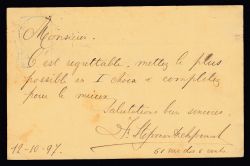 Monsieur.
C'est regrettable. mettez le plus
possible en I choix & complétez
pour le mieux.
Salutations bien sincères.
12-10-97.